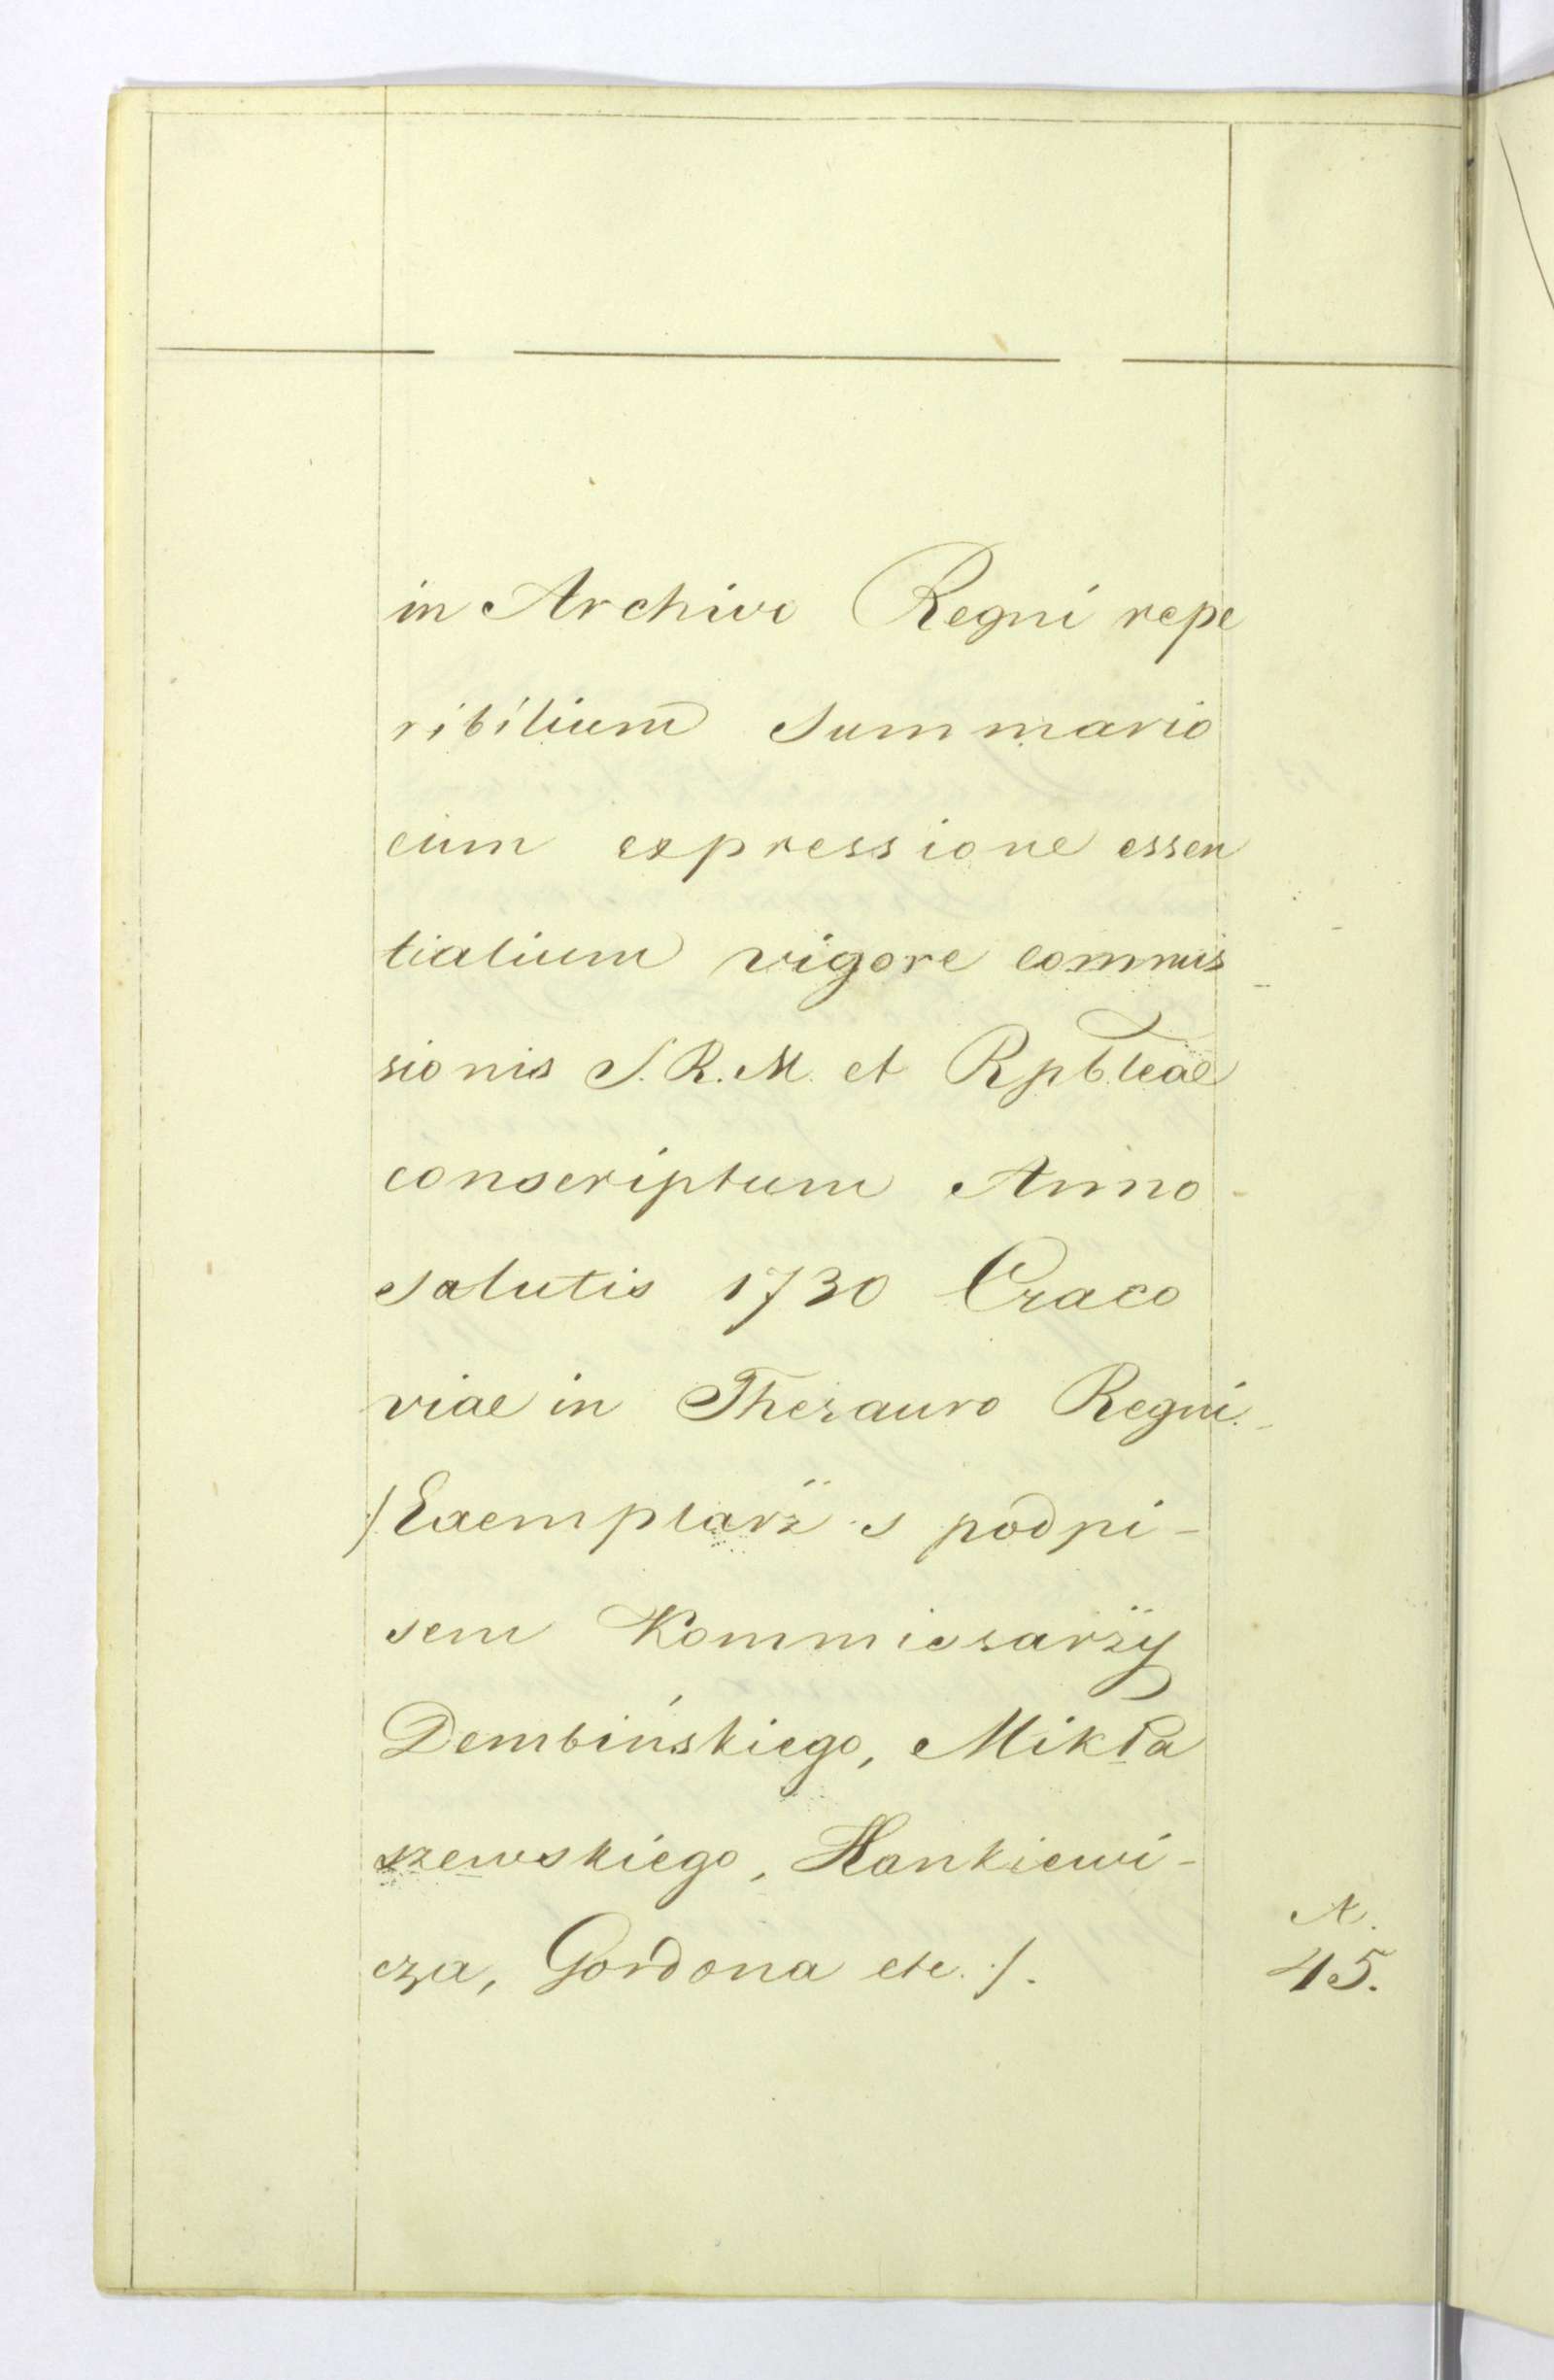 in Archivo Regni repe
ribilium Summario
cum expressione essen
tialium vigore commis_
sionis S.R.M. et Rpblcae
conscriptum Anno -
salutis 1730 Craco
viae in Thesauro Regni._
/:Exemplarż s podpi-
sem Kommissarży
Dembińskiego, Mikła
szewskiego, Hankiewi-
cza, Gordona etc. :/.
A.
45.